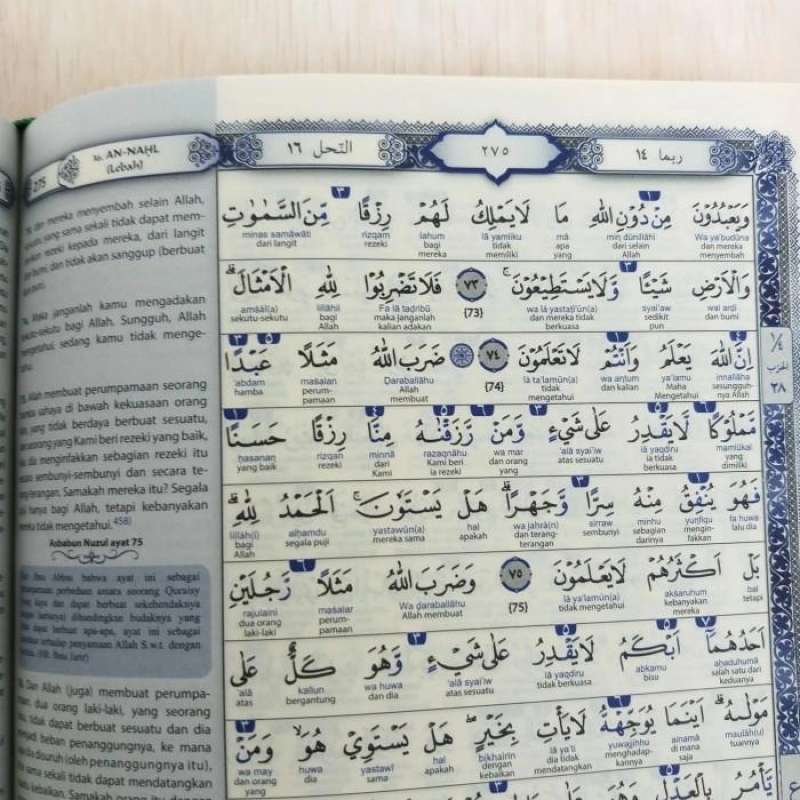 275
16. AN-NAḤL
(Lebah)
النحل ١٦
٢٧٥
ربما ١٤
dan mereka menyembah selain Allah,
yang sama sekali tidak dapat mem-
rezeki kepada mereka, dari langit
bumi, dan tidak akan sanggup (berbuat
pun).
Maka janganlah kamu mengadakan
sekutu-sekutu bagi Allah. Sungguh, Allah
mengetahui, sedang kamu tidak menge-
Allah membuat perumpamaan seorang
sahaya di bawah kekuasaan orang
yang tidak berdaya berbuat sesuatu,
seorang yang Kami beri rezeki yang baik,
dia menginfakkan sebagian rezeki itu
sembunyi-sembunyi dan secara te-
terangan. Samakah mereka itu? Segala
hanya bagi Allah, tetapi kebanyakan
mereka tidak mengetahui.458)
Asbabun Nuzul ayat 75
Ibnu Abbas bahwa ayat ini sebagai
perumpamaan perbedaan antara seorang Quraisy
yang kaya dan dapat berbuat sekehendaknya
dibandingkan budaknya yang
dapat berbuat apa-apa, ayat ini sebagai
terhadap penyamaan Allah S.w.t. dengan
(HR. Ibnu Jarir)
Dan Allah (juga) membuat perumpa-
dua orang laki-laki, yang seorang
tidak dapat berbuat sesuatu dan dia
menjadi beban penanggungnya, ke mana
dia disuruh (oleh penanggungnya itu),
sama sekali tidak dapat mendatangkan
kebaikan. Samakah orang itu dengan
وَيَعْبُدُوْنَ مِنْ دُوْنِ اللّٰهِ مَا لَا يَمْلِكُ لَهُمْ رِزْقًا مِّنَ السَّمٰوٰتِ
Wa ya'budūna min dūnillāhi mā lā yamliku lahum rizqam minas samāwāti
dan mereka menyembah dari selain Allah apa yang tidak memiliki bagi mereka rezeki dari langit
وَالْاَرْضِ شَيْـًٔا وَّلَا يَسْتَطِيْعُوْنَۚ ٧٣ فَلَا تَضْرِبُوْا لِلّٰهِ الْاَمْثَالَۗ
wal arḍi syai'aw wa lā yastaṭī'ūn(a) (73) Fa lā taḍribū lillāhil amṡāl(a)
dan bumi sedikit pun dan mereka tidak berkuasa maka janganlah kalian adakan bagi Allah sekutu-sekutu
اِنَّ اللّٰهَ يَعْلَمُ وَاَنْتُمْ لَا تَعْلَمُوْنَ ٧٤ ضَرَبَ اللّٰهُ مَثَلًا عَبْدًا
innallāha ya'lamu wa antum lā ta'lamūn(a) (74) Daraballāhu maṡalan 'abdam
sesungguhnya Allah Maha Mengetahui dan kalian tidak mengetahui Allah membuat perumpamaan hamba
مَّمْلُوْكًا لَّا يَقْدِرُ عَلٰى شَيْءٍ وَّمَنْ رَّزَقْنٰهُ مِنَّا رِزْقًا حَسَنًا
mamlūkal lā yaqdiru 'alā syai'iw wa mar razaqnāhu minnā rizqan ḥasanan
yang dimiliki ia tidak berkuasa atas sesuatu dan orang yang Kami beri ia rezeki dari Kami rezeki yang baik
فَهُوَ يُنْفِقُ مِنْهُ سِرًّا وَّجَهْرًاۗ هَلْ يَسْتَوٗنَۚ اَلْحَمْدُ لِلّٰهِۗ
fa huwa yunfiqu minhu sirraw wa jahrā(n) hal yastawūn(a) alḥamdu lillāh(i)
lalu dia menginfakkan sebagian darinya sembunyi dan terang-terangan apakah mereka sama segala puji bagi Allah
بَلْ اَكْثَرُهُمْ لَا يَعْلَمُوْنَ ٧٥ وَضَرَبَ اللّٰهُ مَثَلًا رَّجُلَيْنِ
bal akṡaruhum lā ya'lamūn(a) (75) Wa ḍaraballāhu maṡalar rajulaini
tetapi kebanyakan mereka tidak mengetahui Allah membuat perumpamaan dua orang laki-laki
اَحَدُهُمَآ اَبْكَمُ لَا يَقْدِرُ عَلٰى شَيْءٍ وَّهُوَ كَلٌّ عَلٰى
aḥaduhumā abkamu lā yaqdiru 'alā syai'iw wa huwa kallun 'alā
salah satu dari keduanya bisu tidak berkuasa atas sesuatu dan dia bergantung atas
مَوْلٰىهُۗ اَيْنَمَا يُوَجِّهْهُّ لَا يَأْتِ بِخَيْرٍۖ هَلْ يَسْتَوِيْ هُوَۙ وَمَنْ
maulāh(u) ainamā yuwajjihhu lā ya'ti bikhairin hal yastawī huwa wa may
tuannya di mana saja menghadapkannya dia tidak mendatangkan dengan kebaikan apakah sama dia dan orang yang
يَّأْمُرُ بِالْعَدْلِ
¼
الحزب
٢٨